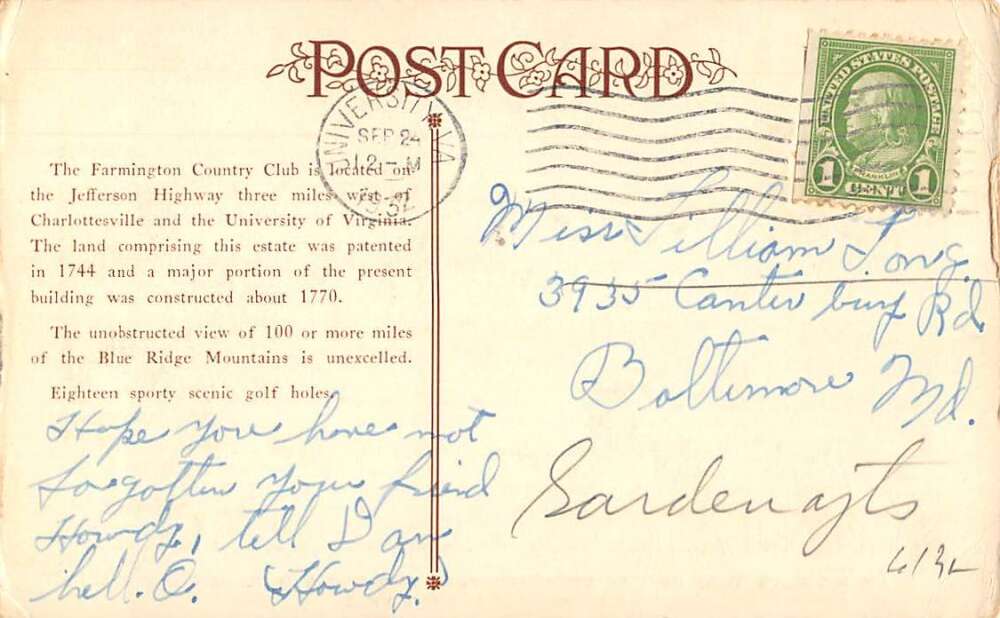 POST CARD
UNIVERSITY, VA.
SEP 24
12 - M
UNITED STATES POSTAGE
FRANKLIN
1 CENT 1
The Farmington Country Club is located on
the Jefferson Highway three miles west of
Charlottesville and the University of Virginia.
The land comprising this estate was patented
in 1744 and a major portion of the present
building was constructed about 1770.
The unobstructed view of 100 or more miles
of the Blue Ridge Mountains is unexcelled.
Eighteen sporty scenic golf holes.
Hope you have not
forgotten your friend
Howdy, tell Dan
hell.O. (Howdy.)
Miss Lilliam Long.
3935 Canterbury Rd
Baltimore Md.
Garden apts